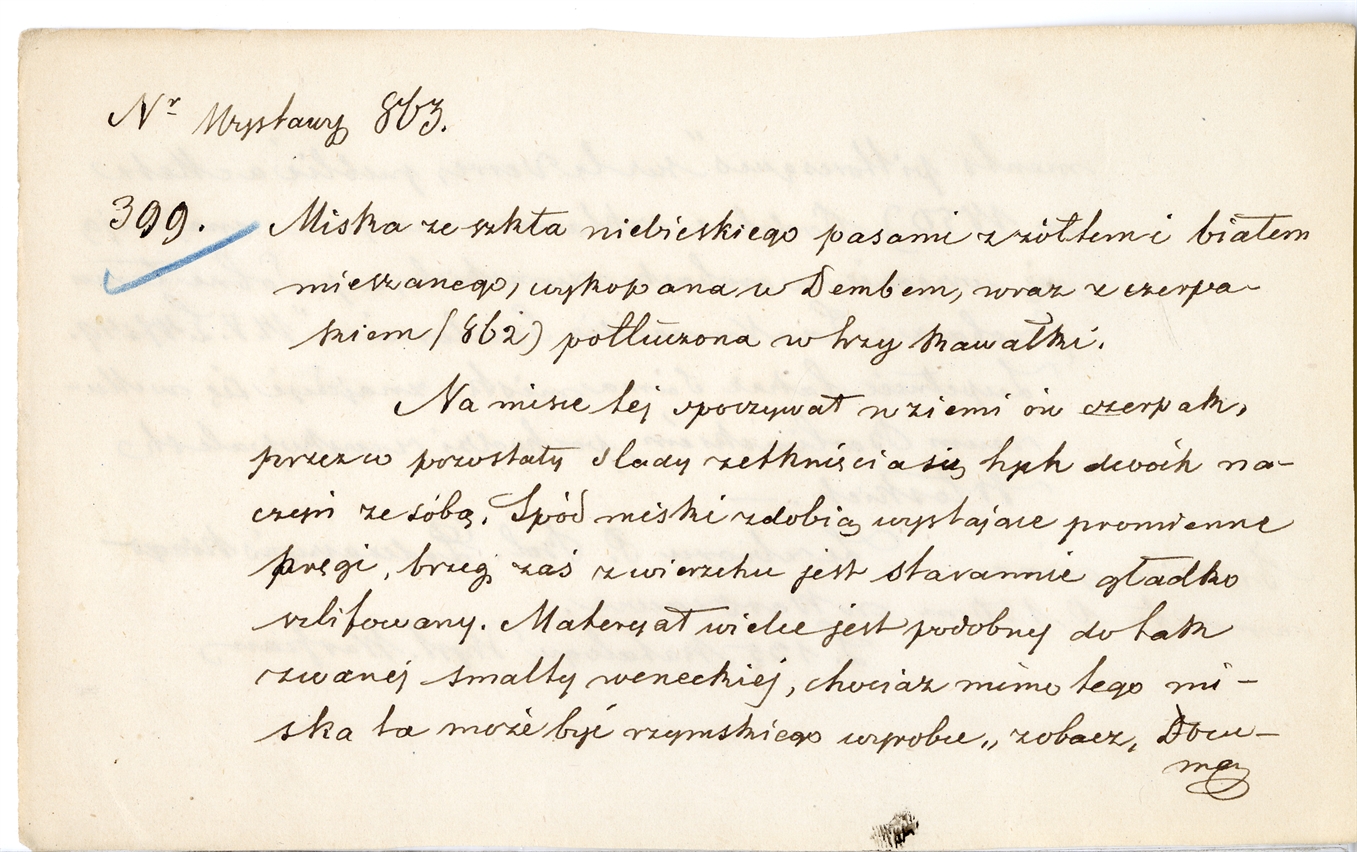 Nr Wystawy 863.
399. Miska ze szkła niebieskiego pasami z żółtem i białem
mieszanego, wykopana w Dembem, wraz z czerpa-
kiem (862) potłuczona w trzy kawałki.
Na misce tej spoczywał w ziemi ów czerpak,
przezco pozostały slady zetknięcia się tych dwóch na-
czyń ze sóbą. Spód miski zdobią wystające promienne
pręgi, brzeg zaś z wierzchu jest starannie gładko
szlifowany. Materyał wielce jest podobny do tak
zwanéj smalty weneckiéj, chociaż mimo tego mi-
ska ta może być rzymskiego wyrobu „ zobacz,